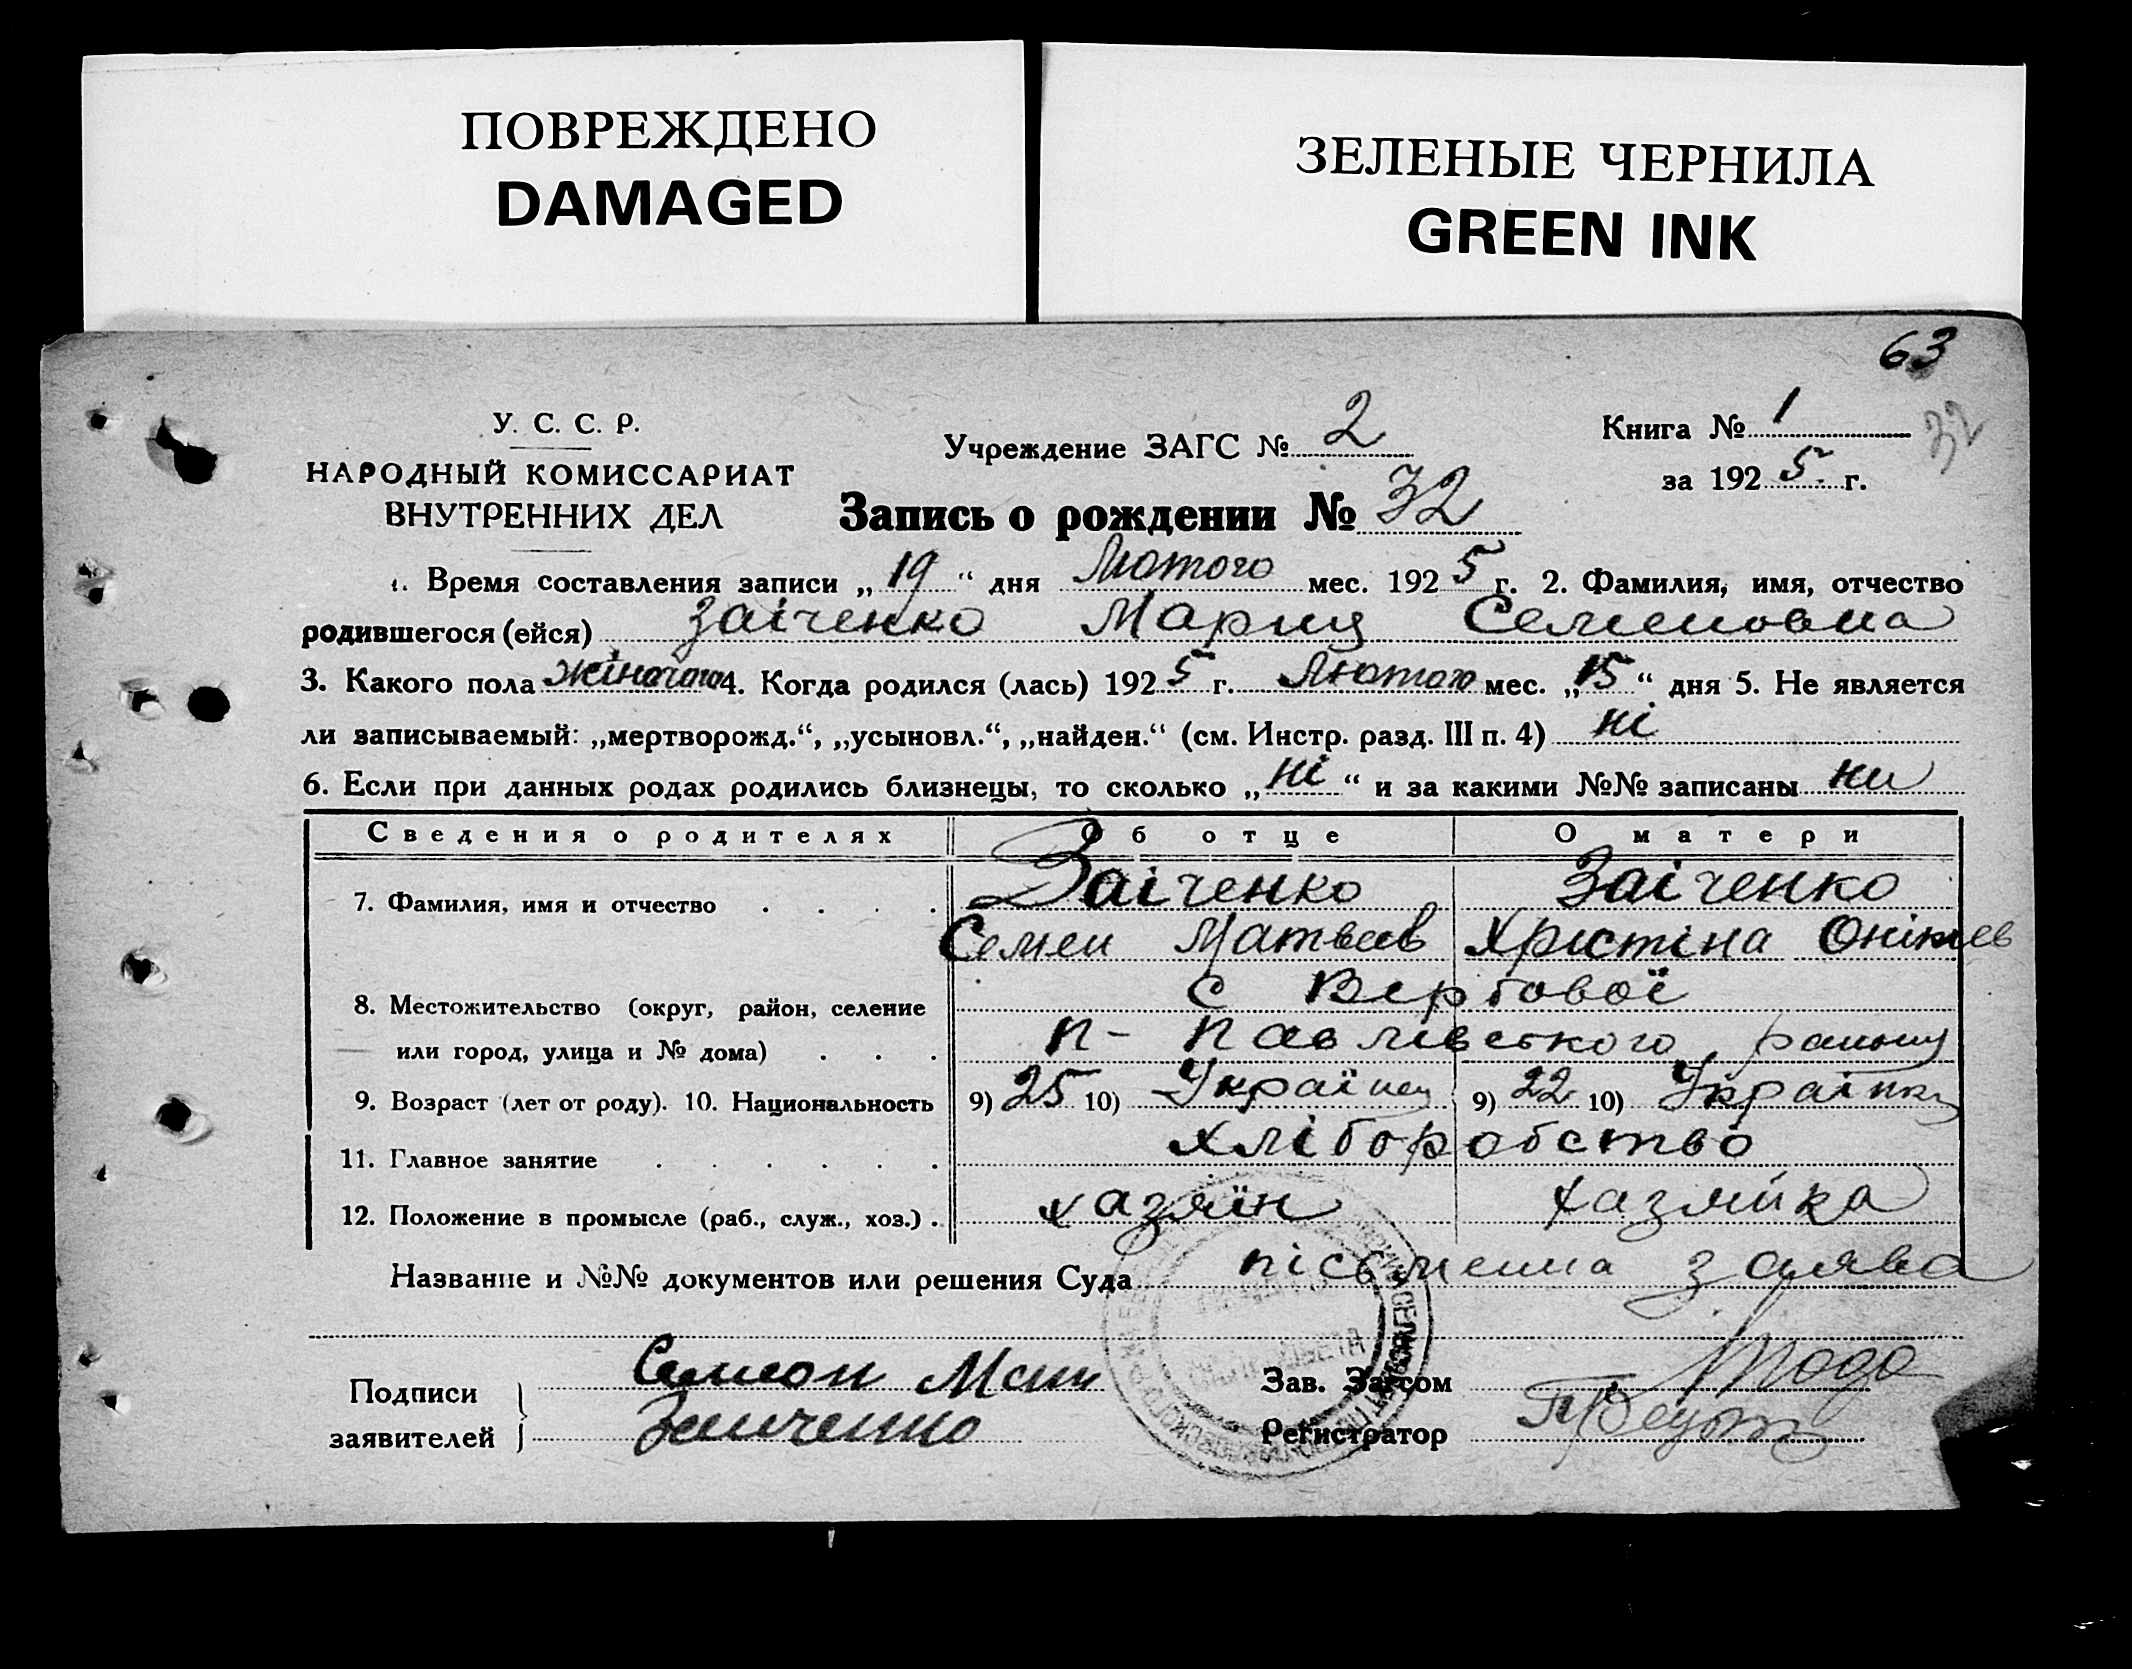 ПОВРЕЖДЕНО
DAMAGED
ЗЕЛЕНЫЕ ЧЕРНИЛА
GREEN INK
63
У. С. С. Р.
НАРОДНЫЙ КОМИССАРИАТ
ВНУТРЕННИХ ДЕЛ
Учреждение ЗАГС № 2
Книга № 1
32
за 1925 г.
Запись о рождении № 32
1. Время составления записи „19“ дня Лютого мес. 1925 г. 2. Фамилия, имя, отчество
родившегося (ейся) Заіченко Мария Семеновна
3. Какого пола жіночого 4. Когда родился (лась) 1925 г. Лютого мес. „15“ дня 5. Не является
ли записываемый: „мертворожд.“, „усыновл.“, „найден.“ (см. Инстр. разд. III п. 4) ні
6. Если при данных родах родились близнецы, то сколько „ні“ и за какими №№ записаны ни
Сведения о родителях Об отце О матери
7. Фамилия, имя и отчество . . . . Заіченко Заіченко
Семен Матвеев Хрістіна
8. Местожительство (округ, район, селение с Вербової
или город, улица и № дома) . . . П-Павлівського району
9. Возраст (лет от роду). 10. Национальность 9) 25 10) Українец 9) 22 10) Українка
11. Главное занятие . . . . . . хліборобство
12. Положение в промысле (раб., служ., хоз.) . хазяїн хазяйка
Название и №№ документов или решения Суда пісьменна заява
Подписи заявителей
Семеон
Заиченко
Зав. Загсом
Регистратор